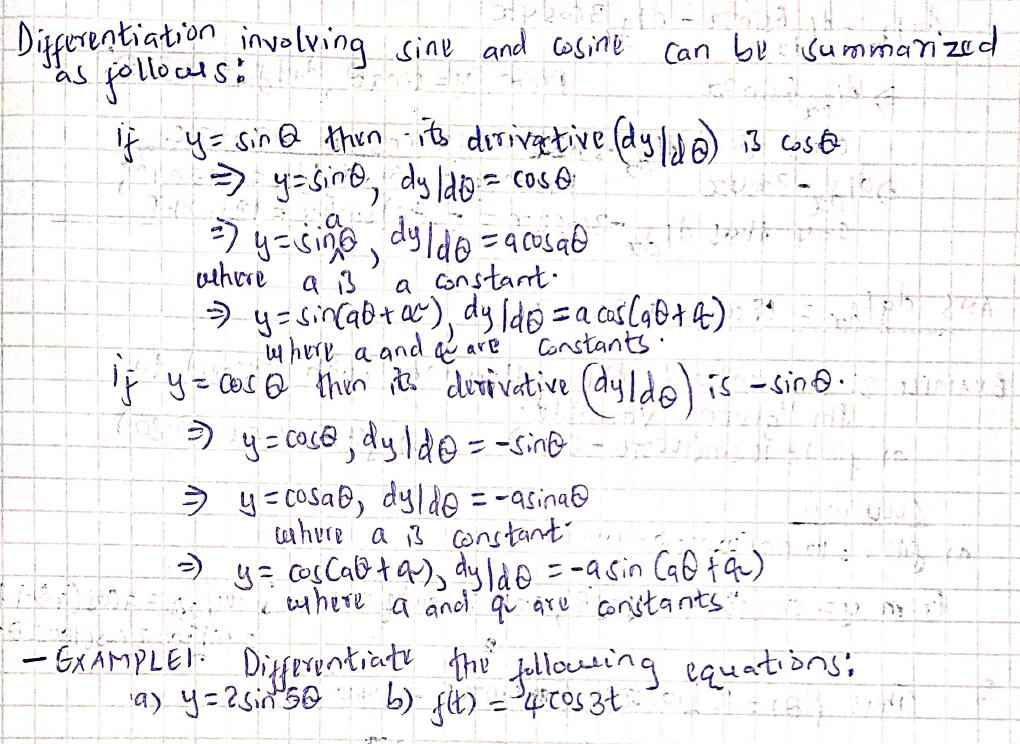 Differentiation involving sine and cosine can be summarized
as follows:
if y = sinθ then its derivative (dy/dθ) is cosθ
⇒ y = sinθ, dy/dθ = cosθ
⇒ y = sin aθ, dy/dθ = a cos aθ
where a is a constant.
⇒ y = sin(aθ + α), dy/dθ = a cos(aθ + α)
where a and α are constants.
if y = cosθ then its derivative (dy/dθ) is -sinθ.
⇒ y = cosθ, dy/dθ = -sinθ
⇒ y = cos aθ, dy/dθ = -a sin aθ
where a is constant.
⇒ y = cos(aθ + α), dy/dθ = -a sin(aθ + α)
where a and α are constants.
- EXAMPLE 1. Differentiate the following equations:
a) y = 2 sin 5θ b) f(t) = 4 cos 3t